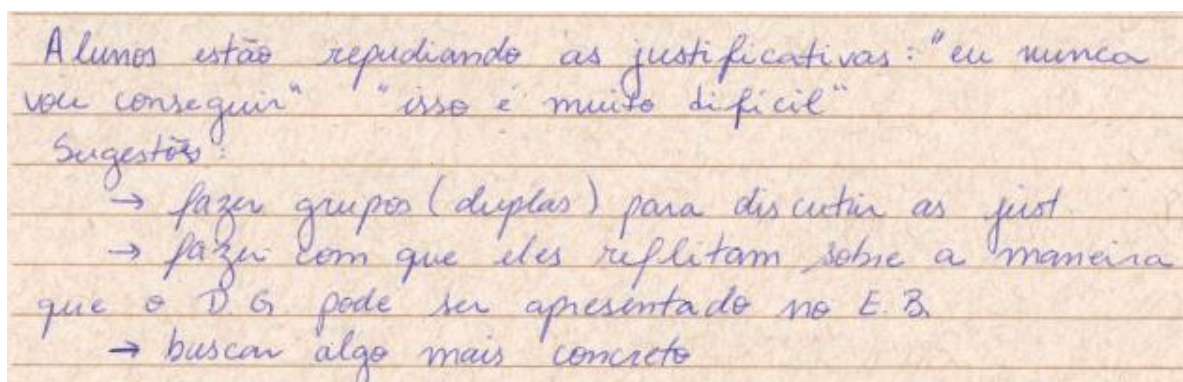 Alunos estão repudiando as justificativas: "eu nunca
vou conseguir" "isso é muito difícil"
Sugestões:
→ fazer grupos (duplas) para discutir as just.
→ fazer com que eles reflitam sobre a maneira
que o D.G pode ser apresentado no E.B.
→ buscar algo mais concreto